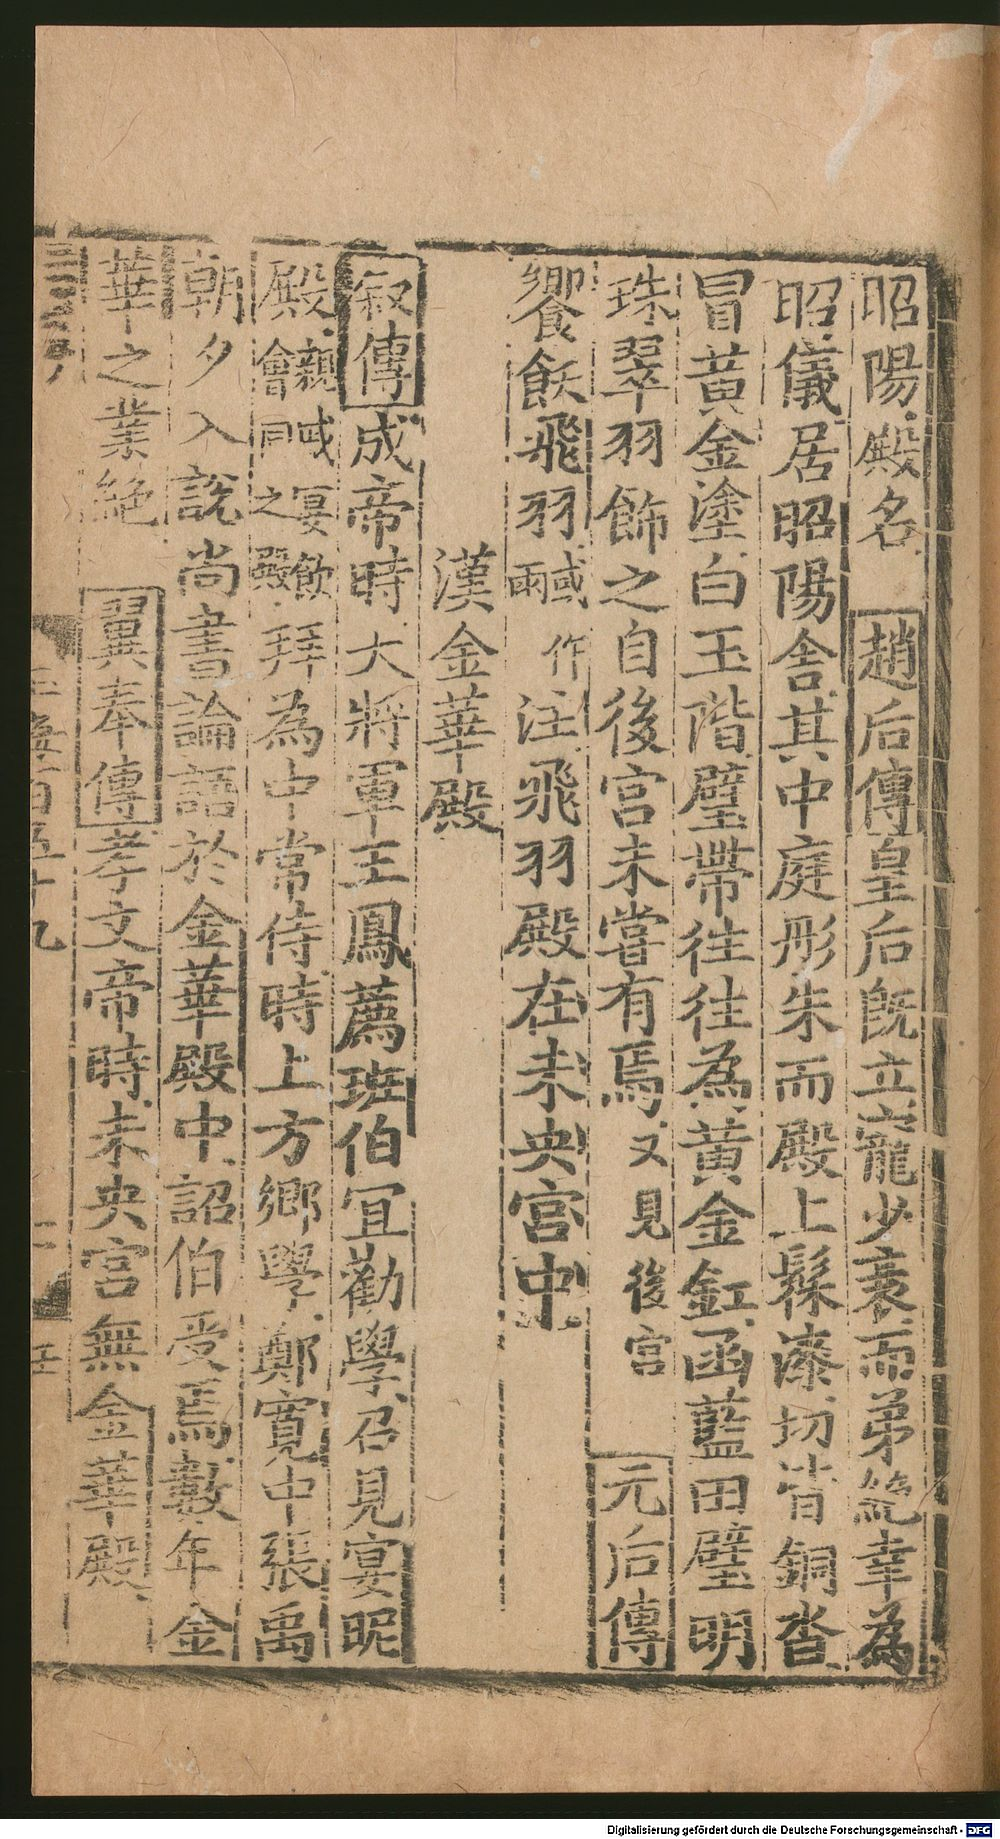 昭陽殿名 趙后傳皇后旣立寵少衰而弟絶幸為
昭儀居昭陽舍其中庭彤朱而殿上髹漆切皆銅沓
冒黃金塗白玉階壁帶往往為黃金釭函藍田璧明
珠翠羽飾之自後宮未嘗有焉又見後宮 元后傳
饗飲飛羽或作雨注飛羽殿在未央宮中
漢金華殿
叙傳成帝時大將軍王鳳薦班伯宜勸學召見宴昵
殿親戚宴飲會同之殿拜為中常侍時上方鄉學鄭寬中張禹
朝夕入說尚書論語於金華殿中詔伯受焉數年金
華之業絶 翼奉傳孝文帝時未央宮無金華殿
海百五十九
Digitalisierung gefördert durch die Deutsche Forschungsgemeinschaft - DFG